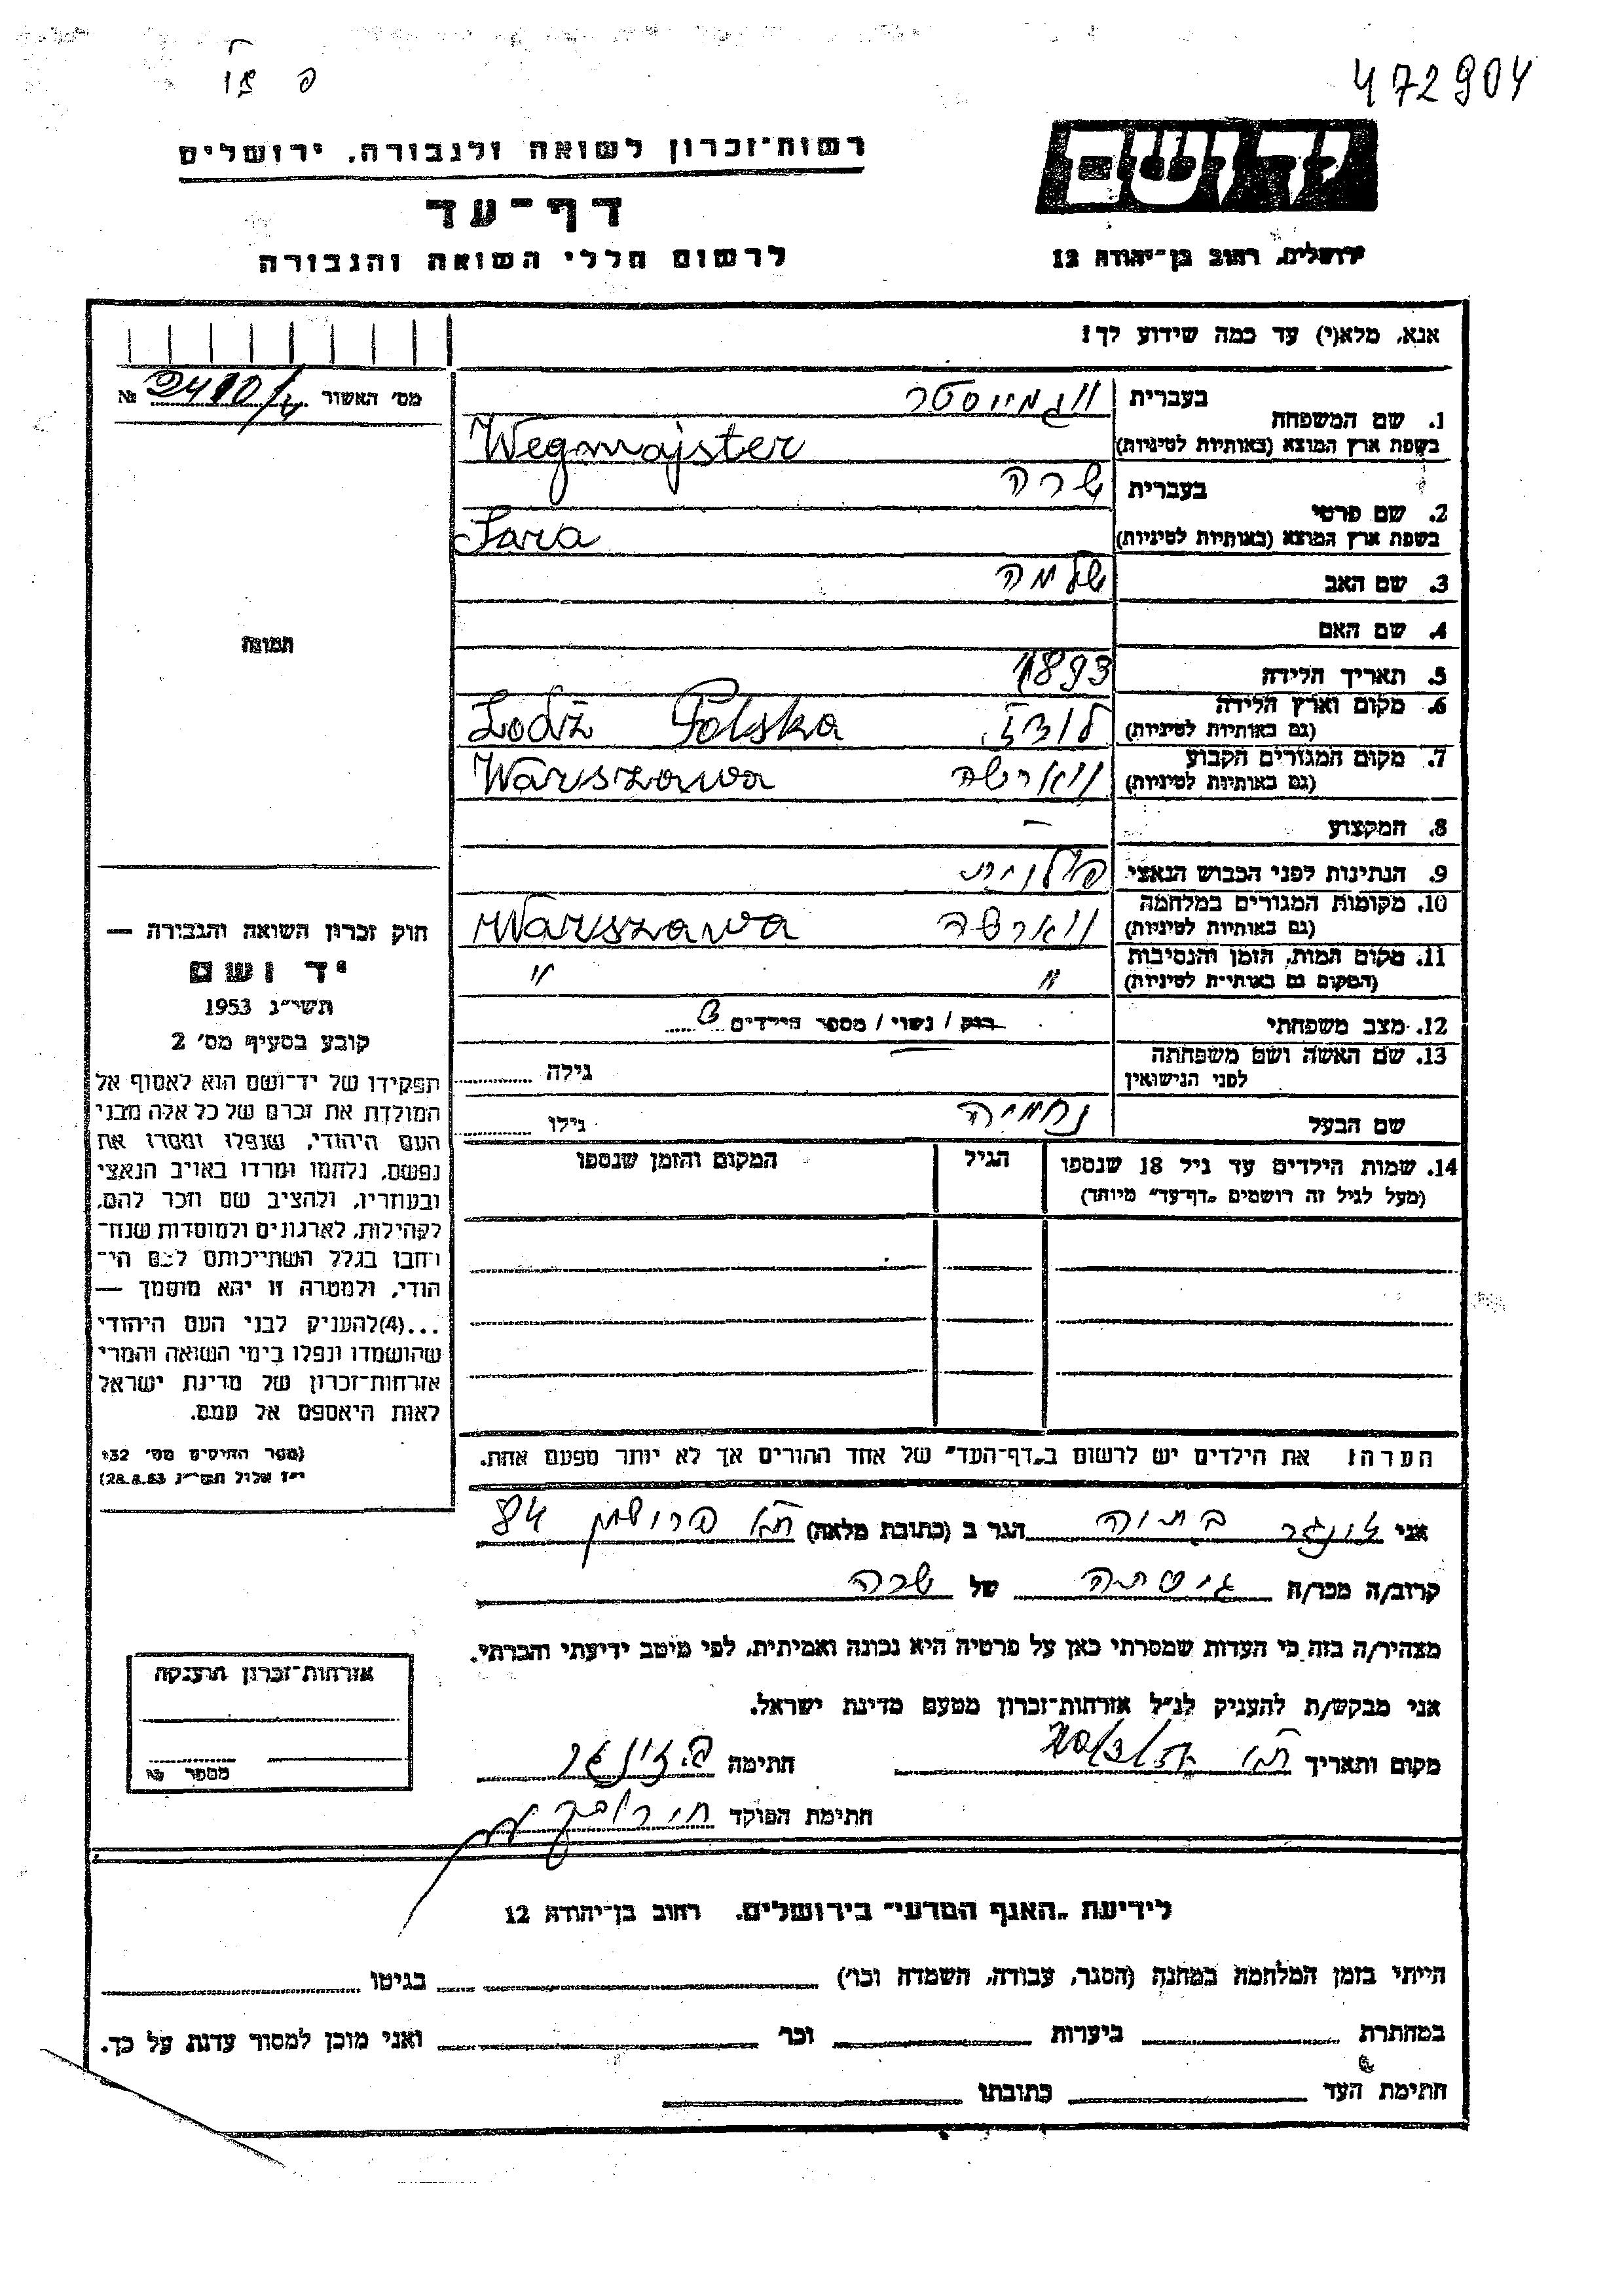 472904
רשות־זכרון לשואה ולגבורה, ירושלים
יד ושם
דף־עד
לרשום חללי השואה והגבורה
ירושלים, רחוב בן־יהודה 12
אנא, מלא(י) עד כמה שידוע לך!
מס' האשור № 2410/
1. שם המשפחה בעברית ווגמייסטר
בשפת ארץ המוצא (באותיות לטיניות) Wegmajster
2. שם פרטי בעברית שרה
בשפת ארץ המוצא (באותיות לטיניות) Sara
3. שם האב שלמה
4. שם האם
5. תאריך הלידה 1893
6. מקום וארץ הלידה לודז Lodż Polska
(גם באותיות לטיניות)
7. מקום המגורים הקבוע ווארשה Warszawa
(גם באותיות לטיניות)
8. המקצוע –
9. הנתינות לפני הכבוש הנאצי פולנית
10. מקומות המגורים במלחמה ווארשה Warszawa
(גם באותיות לטיניות)
11. מקום המות, הזמן והנסיבות " "
(המקום גם באותיות לטיניות)
12. מצב משפחתי רוק / נשוי / מספר הילדים 3
13. שם האשה ושם משפחתה גילה
לפני הנישואין
שם הבעל נחמיה גילו
14. שמות הילדים עד גיל 18 שנספו הגיל המקום והזמן שנספו
(מעל לגיל זה רושמים „דף־עד" מיוחד)
הערה: את הילדים יש לרשום ב„דף־העד" של אחד ההורים אך לא יותר מפעם אחת.
תמונה
חוק זכרון השואה והגבורה —
יד ושם
תשי"ג 1953
קובע בסעיף מס' 2
תפקידו של יד־ושם הוא לאסוף אל
המולדת את זכרם של כל אלה מבני
העם היהודי, שנפלו ומסרו את
נפשם, נלחמו ומרדו באויב הנאצי
ובעוזריו, ולהציב שם וזכר להם,
לקהילות, לארגונים ולמוסדות שנח־
רבו בגלל השתייכותם לעם הי־
הודי, ולמטרה זו יהא מוסמך —
...(4)להעניק לבני העם היהודי
שהושמדו ונפלו בימי השואה והמרי
אזרחות־זכרון של מדינת ישראל
לאות היאספם אל עמם.
(ספר החוקים מס' 132
י"ז אלול תשי"ג 28.8.53)
אני אונגר בתיה הגר ב (כתובת מלאה) ת"א פרישמן 84
קרוב/ה מכר/ה גיסתה של שרה
מצהיר/ה בזה כי העדות שמסרתי כאן על פרטיה היא נכונה ואמיתית, לפי מיטב ידיעתי והכרתי.
אני מבקש/ת להעניק לנ"ל אזרחות־זכרון מטעם מדינת ישראל.
מקום ותאריך ת"א חתימה ב. אונגר
חתימת הפוקד
אזרחות־זכרון הוענקה
מספר №
לידיעת „האגף המדעי" בירושלים, רחוב בן־יהודה 12
הייתי בזמן המלחמה במחנה (הסגר, עבודה, השמדה וכו') בגיטו
במחתרת ביערות וכו' ואני מוכן למסור עדות על כך.
חתימת העד כתובתו